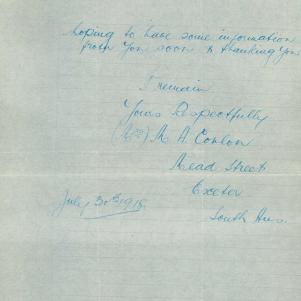 hoping to have some information
from you soon & thanking you
I remain
Yours Respectfully
(Mrs) M A Conlon
Mead Street
Exeter
South Aus.
July 30th 1918